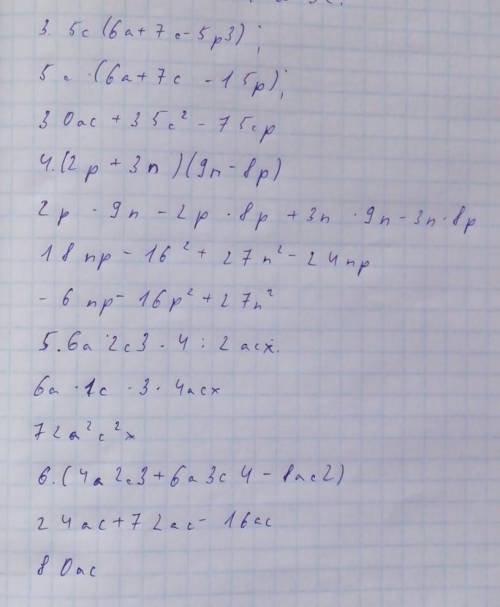 3. 5c (6a + 7c - 5p3) ;
5c · (6a + 7c - 15p) ;
30ac + 35c² - 75cp
4. (2p + 3n) (9n - 8p)
2p · 9n - 2p · 8p + 3n · 9n - 3n · 8p
18np - 16² + 27n² - 24np
- 6np - 16p² + 27n²
5. 6a · 2c3 · 4 : 2acx.
6a · 1c · 3 · 4acx
72a²c²x
6. (4a2c3 + 6a3c4 - 8ac2)
24ac + 72ac - 16ac
80ac